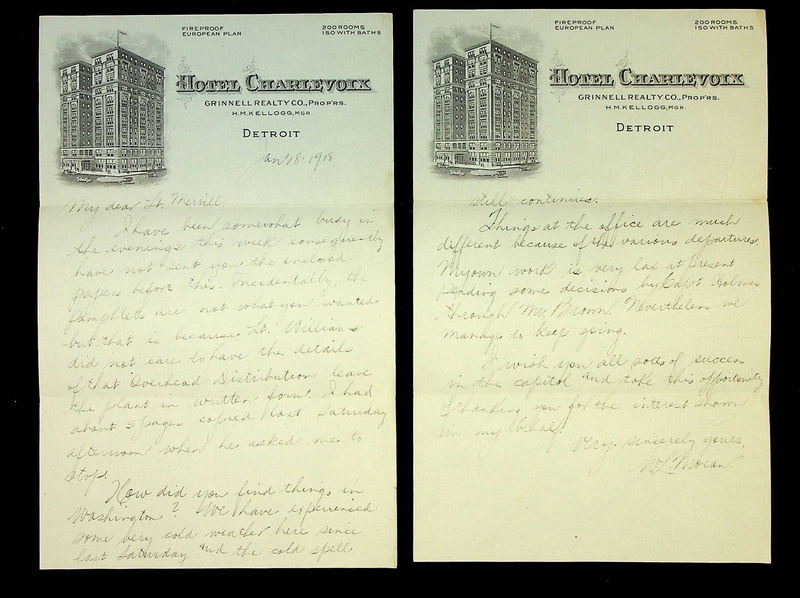 FIREPROOF
EUROPEAN PLAN
200 ROOMS
150 WITH BATHS
HOTEL CHARLEVOIX
GRINNELL REALTY CO., PROP'RS.
H.M. KELLOGG, MGR
DETROIT
Jan 18-1918
My dear Lt. Merrill
I have been somewhat busy in
the evenings this week consequently
have not sent you the enclosed
papers before this. Incidentally, the
pamphlets are not what you wanted
but that is because Lt. Williams
did not care to have the details
of that Overhead Distribution leave
the plant in written form. I had
about 5 pages copied last Saturday
afternoon when he asked me to
stop.
How did you find things in
Washington? We have experienced
some very cold weather here since
last Saturday and the cold spell
FIREPROOF
EUROPEAN PLAN
200 ROOMS
150 WITH BATHS
HOTEL CHARLEVOIX
GRINNELL REALTY CO., PROP'RS.
H.M. KELLOGG, MGR.
DETROIT
still continues.
Things at the office are much
different because of the various departures.
My own work is very lax at present
pending some decisions by Capt. Holmes
through Mr. Brown. Nevertheless we
manage to keep going.
I wish you all sorts of success
in the capitol and take this opportunity
of thanking you for the interest shown
in my behalf.
Very sincerely yours,
Moran